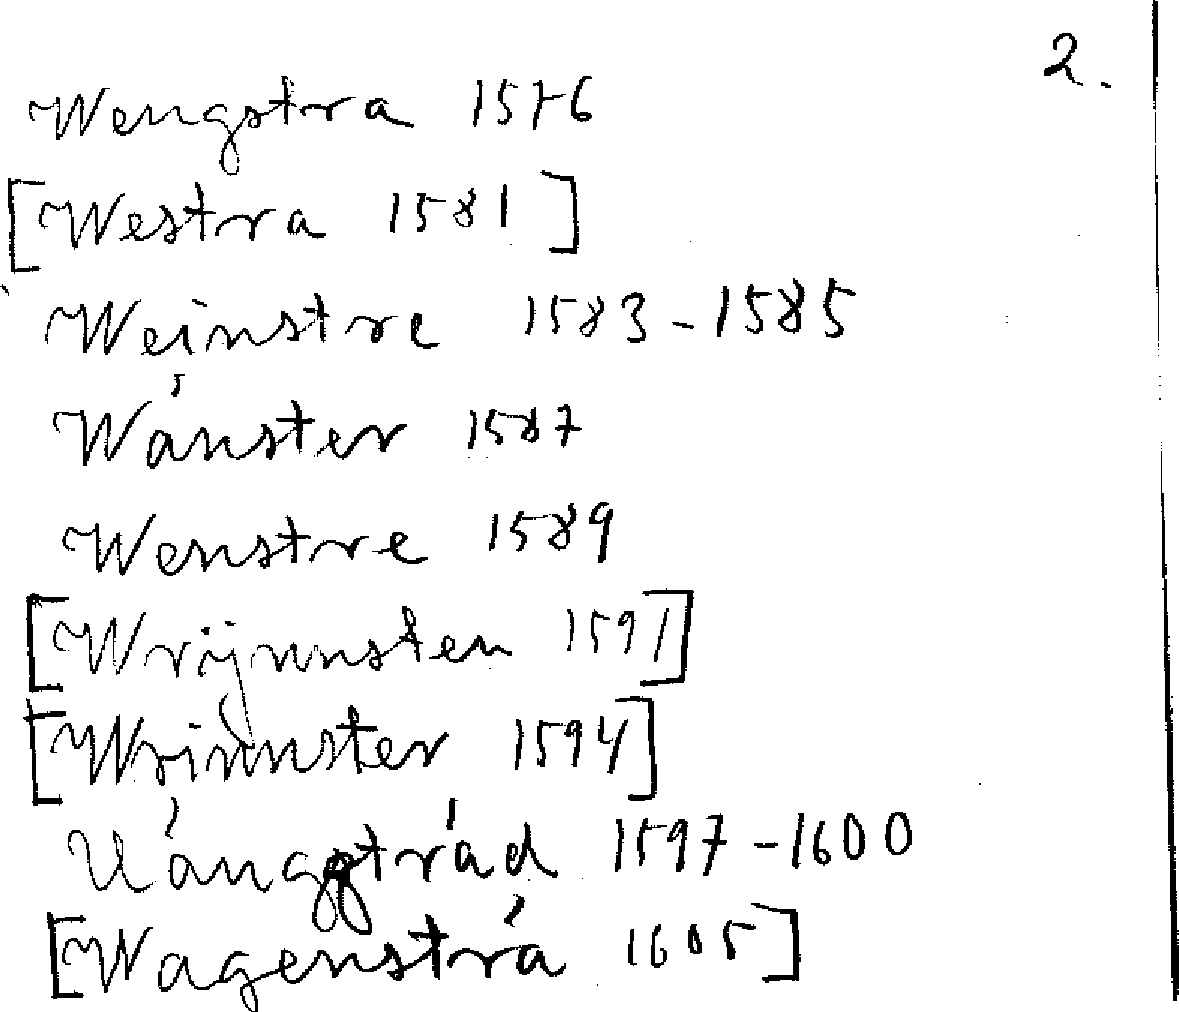 2.
Wengstra 1576
[Westra 1581]
Weinstre 1583-1585
Wánster 1587
Wenstre 1589
[Wrijnnsten 1591]
[Wrinnster 1594]
1597-1600
[Wagenstrá 1605]